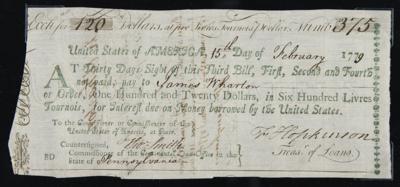 Exch for 120 Dollars, at five Livres Tournois Dollar, Numb. 375
United States of AMERICA, 15th Day of February 1779
AT Thirty Days Sight of this Third Bill, First, Second and Fourth
not paid, pay to James Wharton
or Order, One Hundred and Twenty Dollars, in Six Hundred Livres
Tournois, for Interest due on Money borrowed by the United States.
To the Commissioner or Commissioners of the
United States of America, at Paris.
Countersigned, Thos Smith
Commissioner of the Continental Loan-Office in the
State of Pennsylvania
F. Hopkinson
Treasr of Loans.